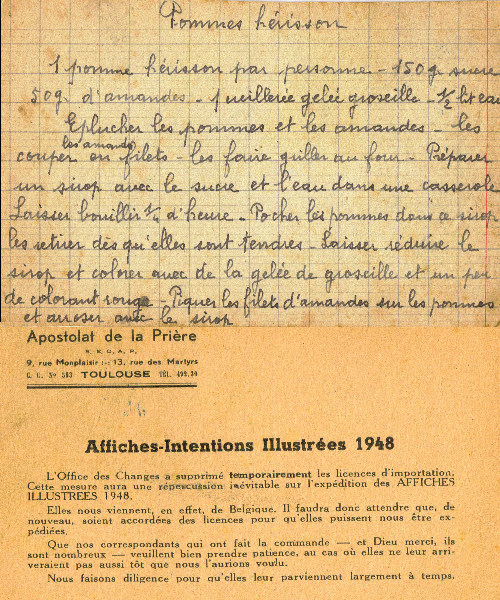 Pommes hérisson
1 pomme hérisson par personne - 150 g. sucre
50 g. d'amandes - 1 cuillerée gelée groseille - 1/2 lit eau
Eplucher les pommes et les amandes - les
les amandes
couper en filets - les faire griller au four - Préparer
un sirop avec le sucre et l'eau dans une casserole
Laisser bouillir 1/4 d'heure - Pocher les pommes dans ce sirop
les retirer dès qu'elles sont tendres - Laisser réduire le
sirop et colorer avec de la gelée de groseille et un peu
de colorant rouge - Piquer les filets d'amandes sur les pommes
et arroser avec le sirop
Apostolat de la Prière
9, rue Monplaisir :-: 13, rue des Martyrs
C. C. No 593 TOULOUSE TÉL.
Affiches-Intentions Illustrées 1948
L'Office des Changes a supprimé temporairement les licences d'importation.
Cette mesure aura une répercussion inévitable sur l'expédition des AFFICHES
ILLUSTREES 1948.
Elles nous viennent, en effet, de Belgique. Il faudra donc attendre que, de
nouveau, soient accordées des licences pour qu'elles puissent nous être ex-
pédiées.
Que nos correspondants qui ont fait la commande — et Dieu merci, ils
sont nombreux — veuillent bien prendre patience, au cas où elles ne leur arri-
veraient pas aussi tôt que nous l'aurions voulu.
Nous faisons diligence pour qu'elles leur parviennent largement à temps.